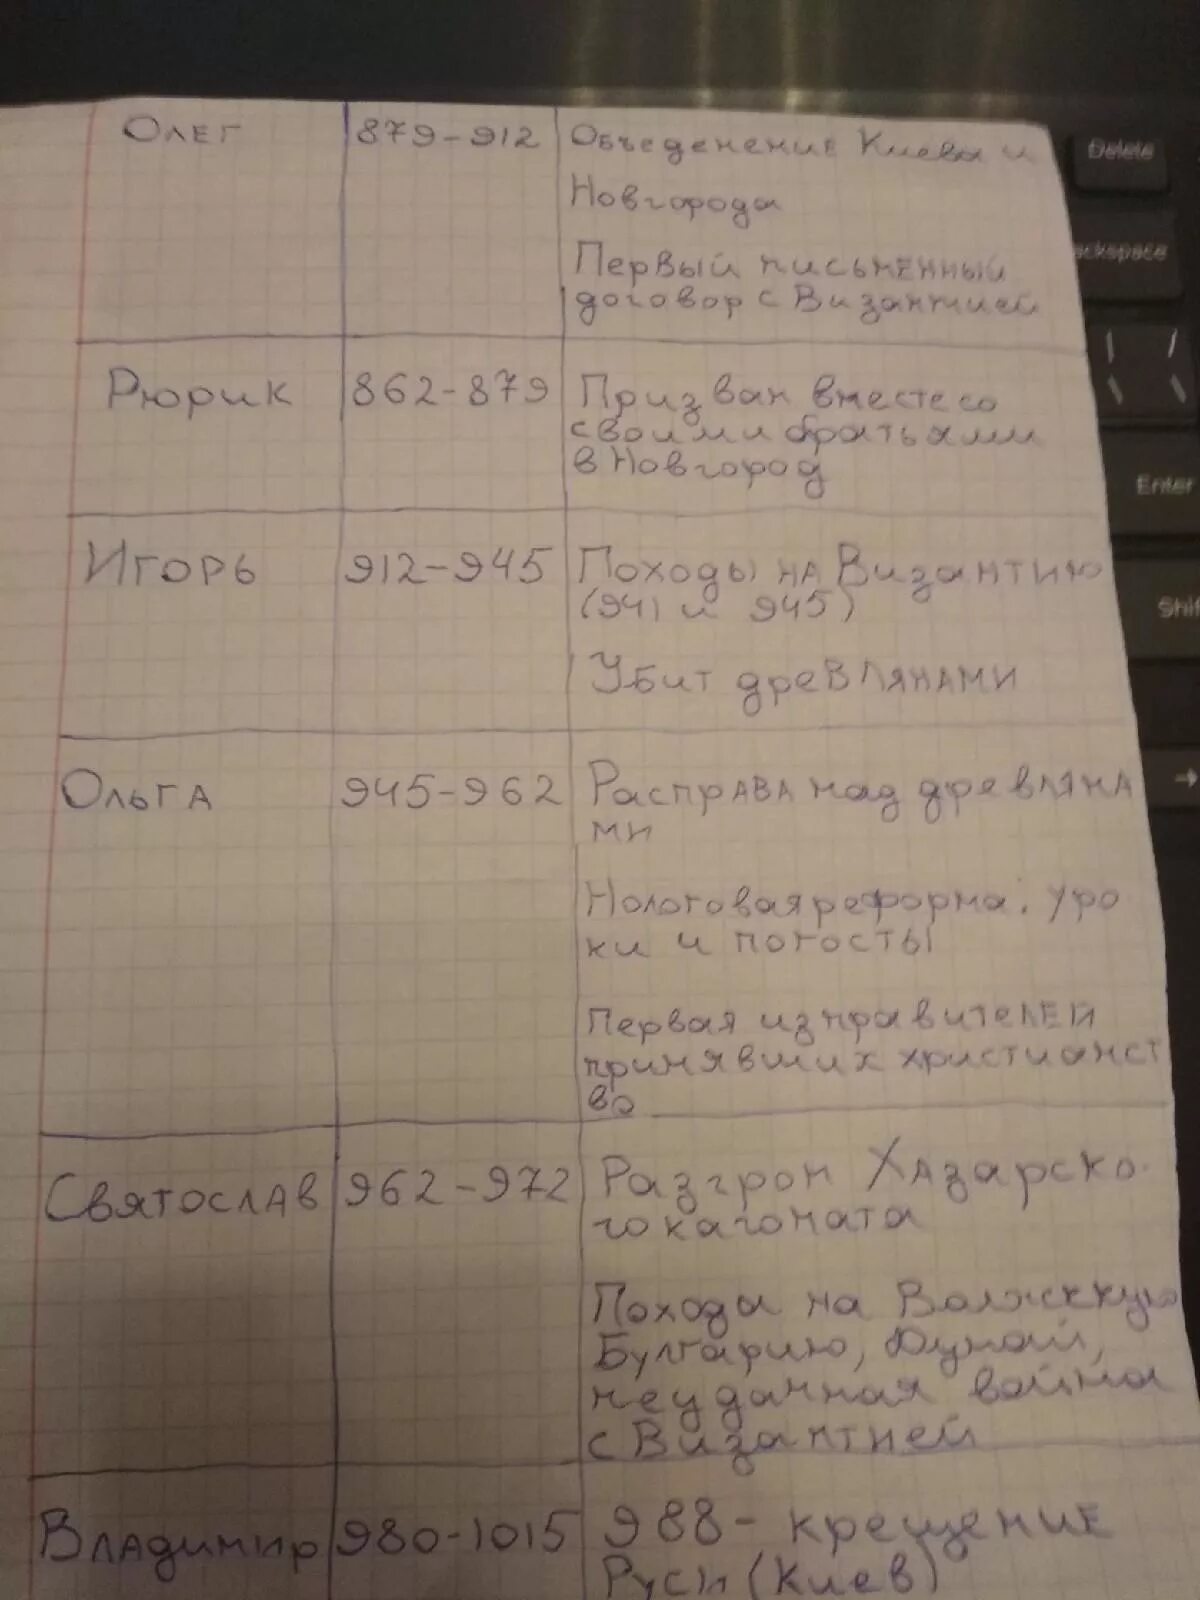 Олег 879-912 Объеденение Киева и
Новгорода
Первый письменный
договор с Византией
Рюрик 862-879 Призван вместе со
своими братьями
в Новгород
Игорь 912-945 Походы на Византию
(941 и 945)
Убит древлянами
Ольга 945-962 Расправа над древляна
ми
Нологовая реформа: уро
ки и погосты
Первая из правителей
принявших христианст
во
Святослав 962-972 Разгром Хазарско-
го каганата
Походы на Волжскую
Булгарию, Дунай,
неудачная война
с Византией
Владимир 980-1015 988- крещение
Руси (Киев)
Delete
ackspace
Enter
Shif
→